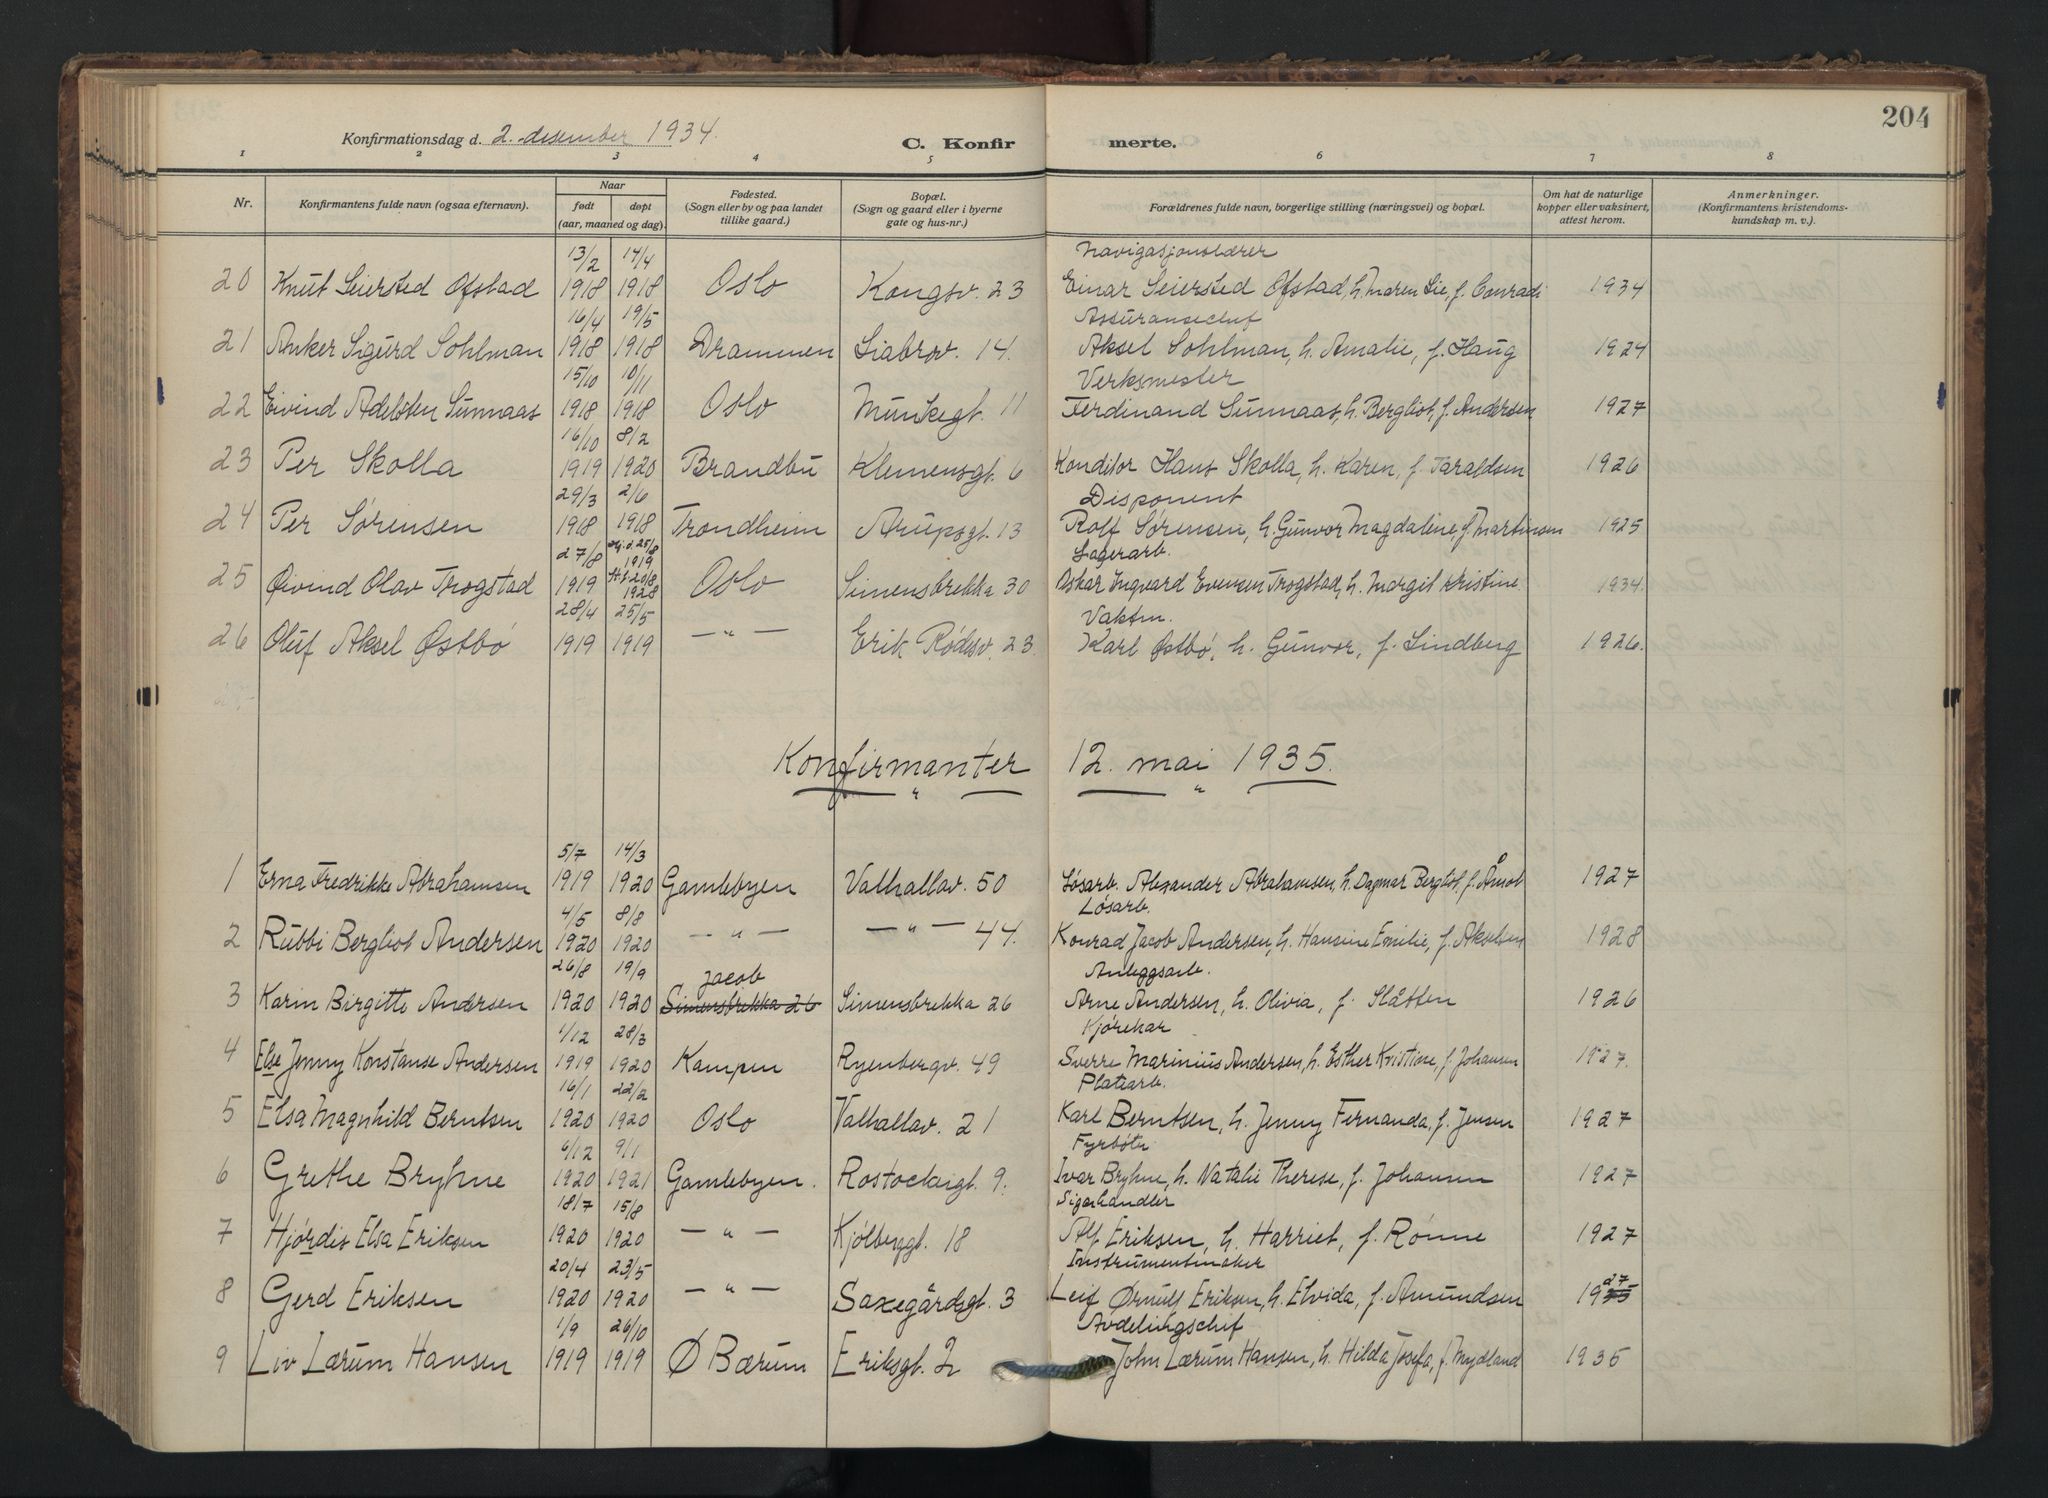 204
Konfirmationsdag d. 2. desember 1934.
C. Konfir merte.
1 2 3 4 5 6 7 8
Nr. Konfirmantens fulde navn (ogsaa efternavn). Naar født døpt (aar, maaned og dag). Fødested. (Sogn eller by og paa landet tillike gaard.) Bopæl. (Sogn og gaard eller i byerne gate og hus-nr.) Forældrenes fulde navn, borgerlige stilling (næringsvei) og bopæl. Om hat de naturlige kopper eller vaksinert, attest herom. Anmerkninger. (Konfirmantens kristendoms-kundskap m. v.).
13/2 14/4 Navigasjonslærer
20 Knut Seiersted Ofstad 1918 1918 Oslo Kongsv. 23 Einar Seiersted Ofstad, h. Maren Lie, f. Conradi 1934
16/4 19/5 Assuransechef
21 Anker Sigurd Sohlman 1918 1918 Drammen Liabrov. 14. Aksel Sohlman, h. Amalie, f. Haug 1924
15/10 10/11 Verksmester
22 Eivind Adelsten Sunnaas 1918 1918 Oslo Munkegt. 11 Ferdinand Sunnaas, h. Bergliot, f. Andersen 1927
16/10 8/2
23 Per Skolla 1919 1920 Brandbu Klemensgt. 6 Konditor Hans Skolla, h. Karen, f. Taraldsen 1926
29/3 2/6 Disponent
24 Per Sørensen 1918 1918 Trondheim Arupsgt. 13 Rolf Sørensen, h. Gunvor Magdalene, f. Martinsen 1925
27/8 25/8 1919 Lagerarb.
25 Øivind Olav Trogstad 1919 20/8 1928 Oslo Simensbrekka 30 Oskar Ingvard Evensen Trogstad, h. Margit Kristine 1934.
28/4 25/5 Vaktm.
26 Oluf Aksel Østbø 1919 1919 — " — Erik Rødsv. 23. Karl Østbø, h. Gunvor, f. Lindberg 1926.
Konfirmanter 12. mai 1935.
5/7 14/3
1 Erna Fredrikke Abrahamsen 1919 1920 Gamlebyen Valhallav. 50 Løsarb. Alexander Abrahamsen, h. Dagmar Bergliot, f. Åmot 1927
4/5 8/8 Løsarb.
2 Rubbi Bergliot Andersen 1920 1920 — " — — " — 44. Konrad Jacob Andersen, h. Hansine Emilie, f. Akselsen 1928
26/8 19/9 Jacob Anleggsarb.
3 Karin Birgitte Andersen 1920 1920 Simensbrekka 26 Simensbrekka 26 Arne Andersen, h. Olivia, f. Slåtten 1926
1/12 28/3 Kjørekar
4 Else Jenny Konstanse Andersen 1919 1920 Kampen Ryenbergv. 49 Sverre Marinius Andersen, h. Esther Kristine, f. Johansen 1927.
16/1 22/2 Platearb.
5 Elsa Magnhild Berntsen 1920 1920 Oslo Valhallav. 21 Karl Berntsen, h. Jenny Fernanda, f. Jensen 1927
6/12 9/1 Fyrbøter
6 Grethe Bryhne 1920 1921 Gamlebyen. Rostocksgt. 9. Ivar Bryhne, h. Natalie Therese, f. Johansen 1927
18/7 15/8 Sigarhandler
7 Hjørdis Elsa Eriksen 1920 1920 — " — Kjølberggt. 18 Alf Eriksen, h. Harriet, f. Rønne 1927
20/4 23/5 Instrumentmaker
8 Gerd Eriksen 1920 1920 — " — Saxegårdsgt. 3 Leif Ørnulf Eriksen, h. Elvida, f. Amundsen 1927
1/9 26/10 Avdelingschef
9 Liv Lærum Hansen 1919 1919 Ø Bærum Eriksgt. 2 John Lærum Hansen, h. Hilda Josefa, f. Mydland 1935